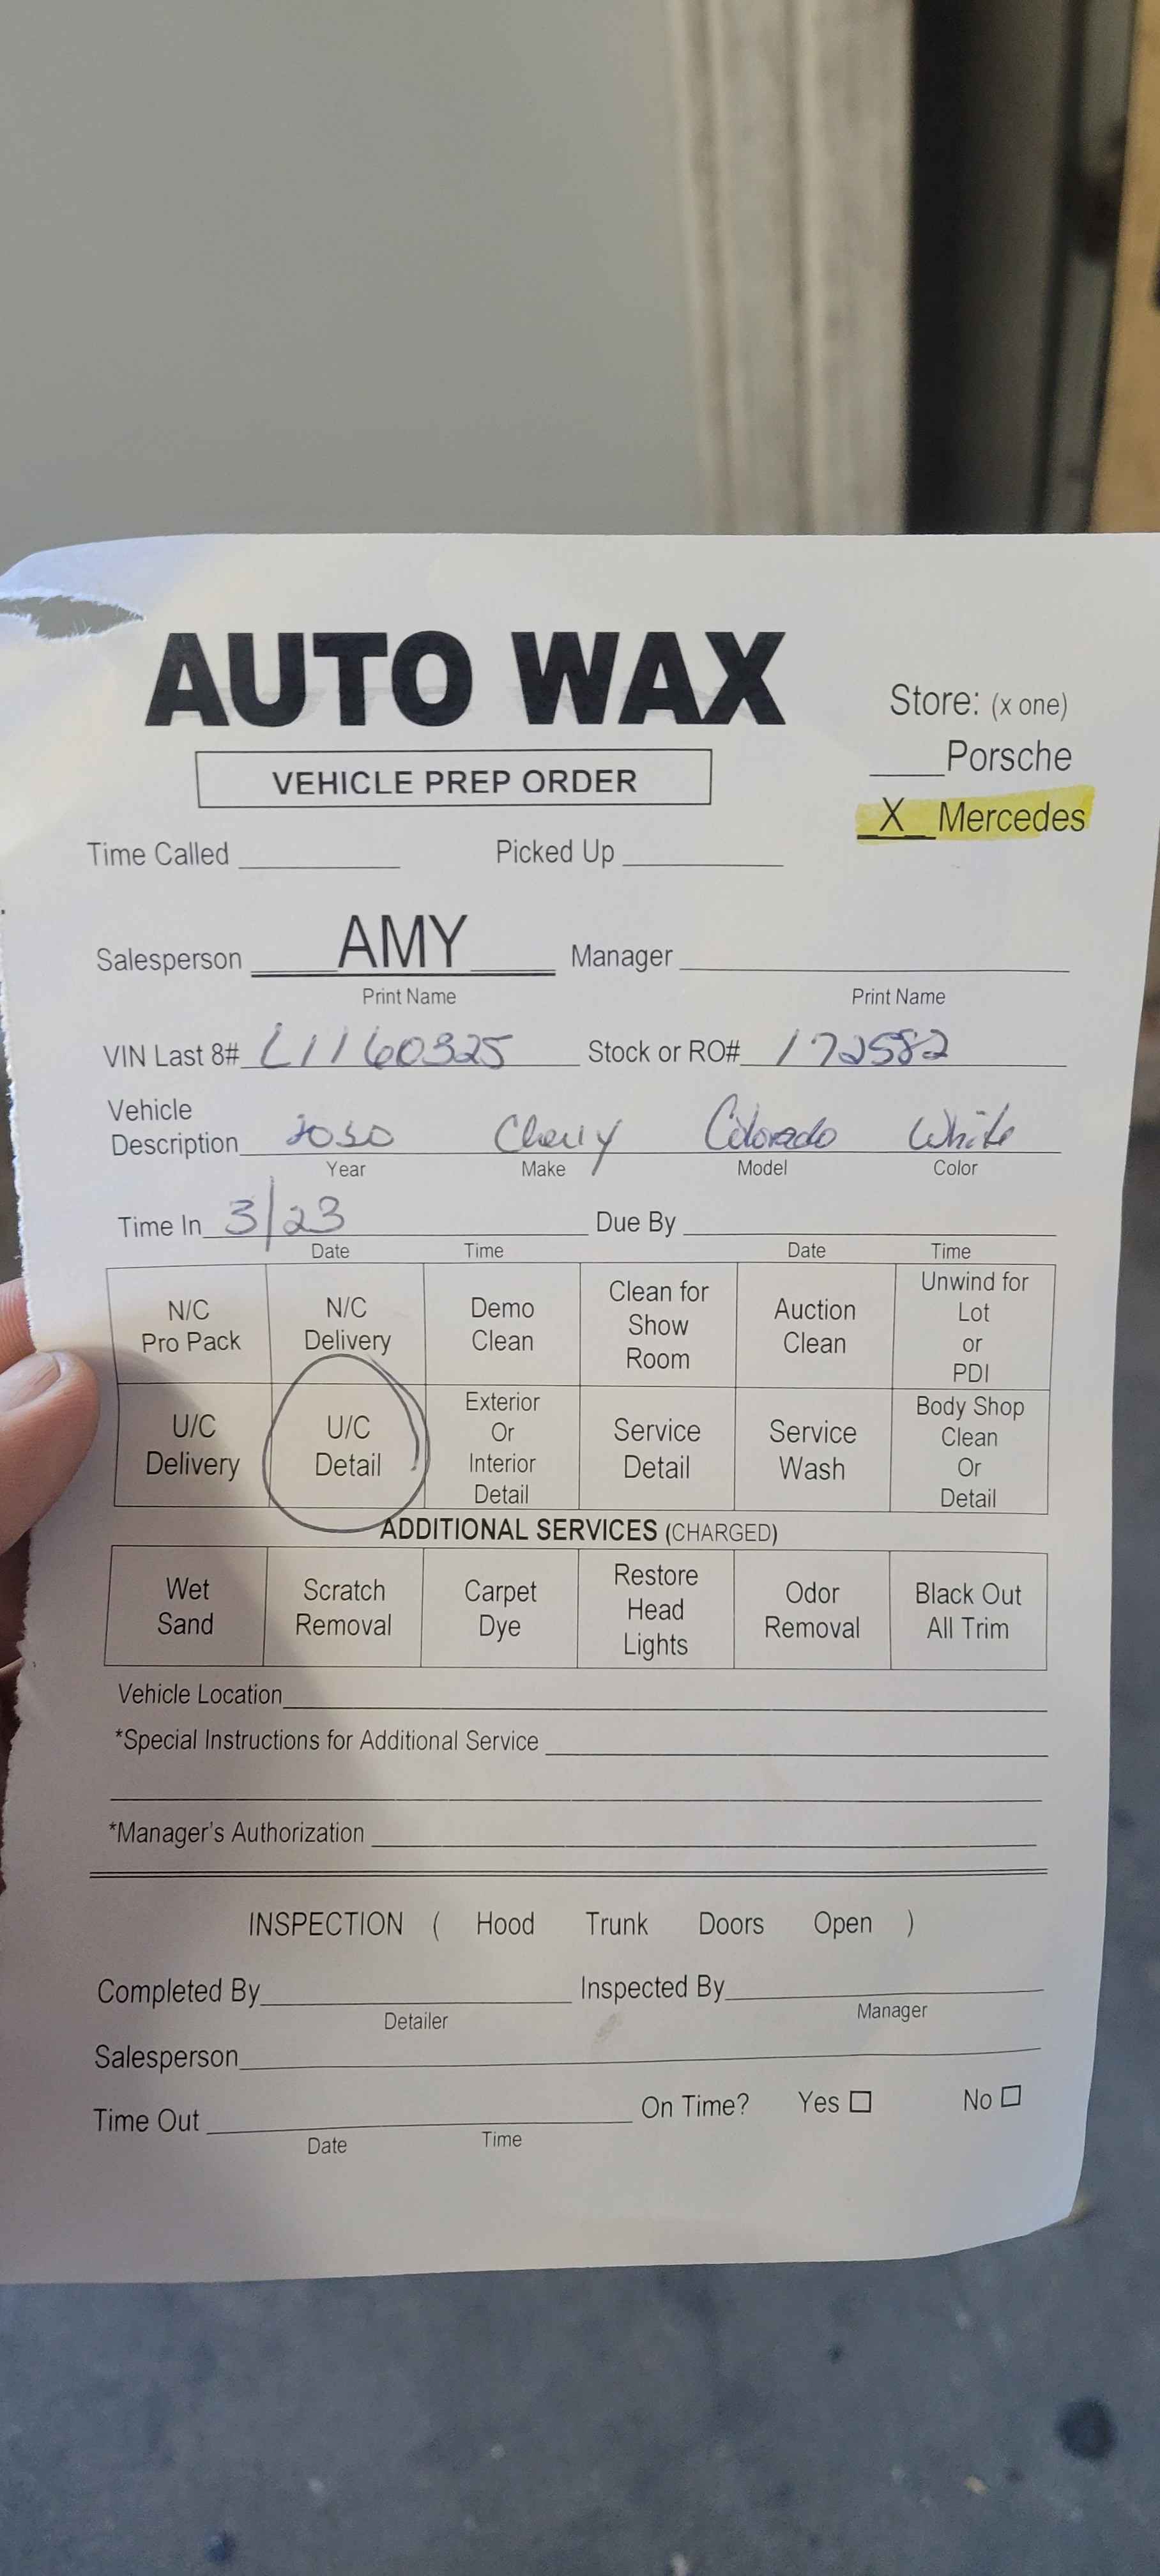 AUTO WAX
Store: (x one)
VEHICLE PREP ORDER
____Porsche
_X_Mercedes
Time Called ____ Picked Up ____
Salesperson AMY Manager ____
Print Name Print Name
VIN Last 8# L1160325 Stock or RO# 172582
Vehicle
Description 2020 Chevy Colorado White
Year Make Model Color
Time In 3/23 Due By ____
Date Time Date Time
N/C Pro Pack N/C Delivery Demo Clean Clean for Show Room Auction Clean Unwind for Lot or PDI
U/C Delivery U/C Detail Exterior Or Interior Detail Service Detail Service Wash Body Shop Clean Or Detail
ADDITIONAL SERVICES (CHARGED)
Wet Sand Scratch Removal Carpet Dye Restore Head Lights Odor Removal Black Out All Trim
Vehicle Location____
*Special Instructions for Additional Service ____
*Manager's Authorization ____
INSPECTION ( Hood Trunk Doors Open )
Completed By____ Inspected By____
Detailer Manager
Salesperson____
Time Out ____ On Time? Yes ☐ No ☐
Date Time